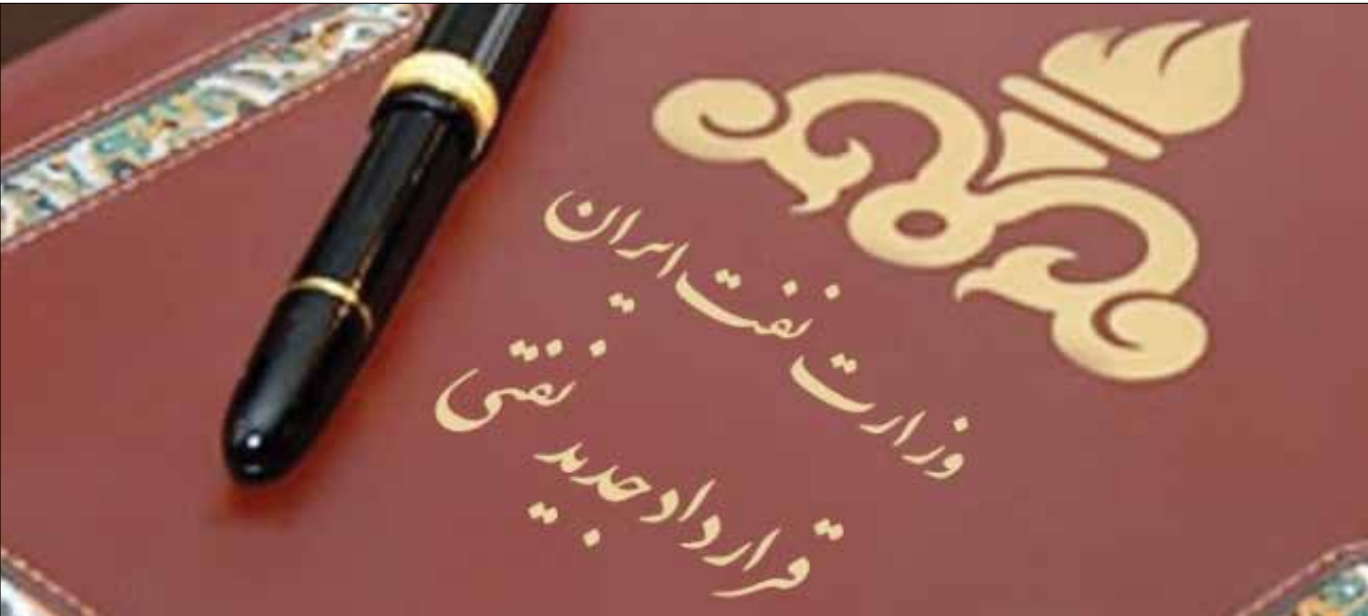 وزارت نفت ایران
قرارداد جدید نفتی